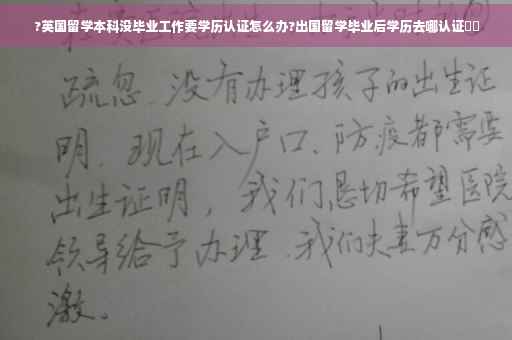 ?英国留学本科没毕业工作要学历认证怎么办?出国留学毕业后学历去哪认证
疏忽、没有办理孩子的出生证
明、现在入户口、防疫都需要
出生证明，我们恳切希望医院
领导给予办理、我们夫妻万分感
激。